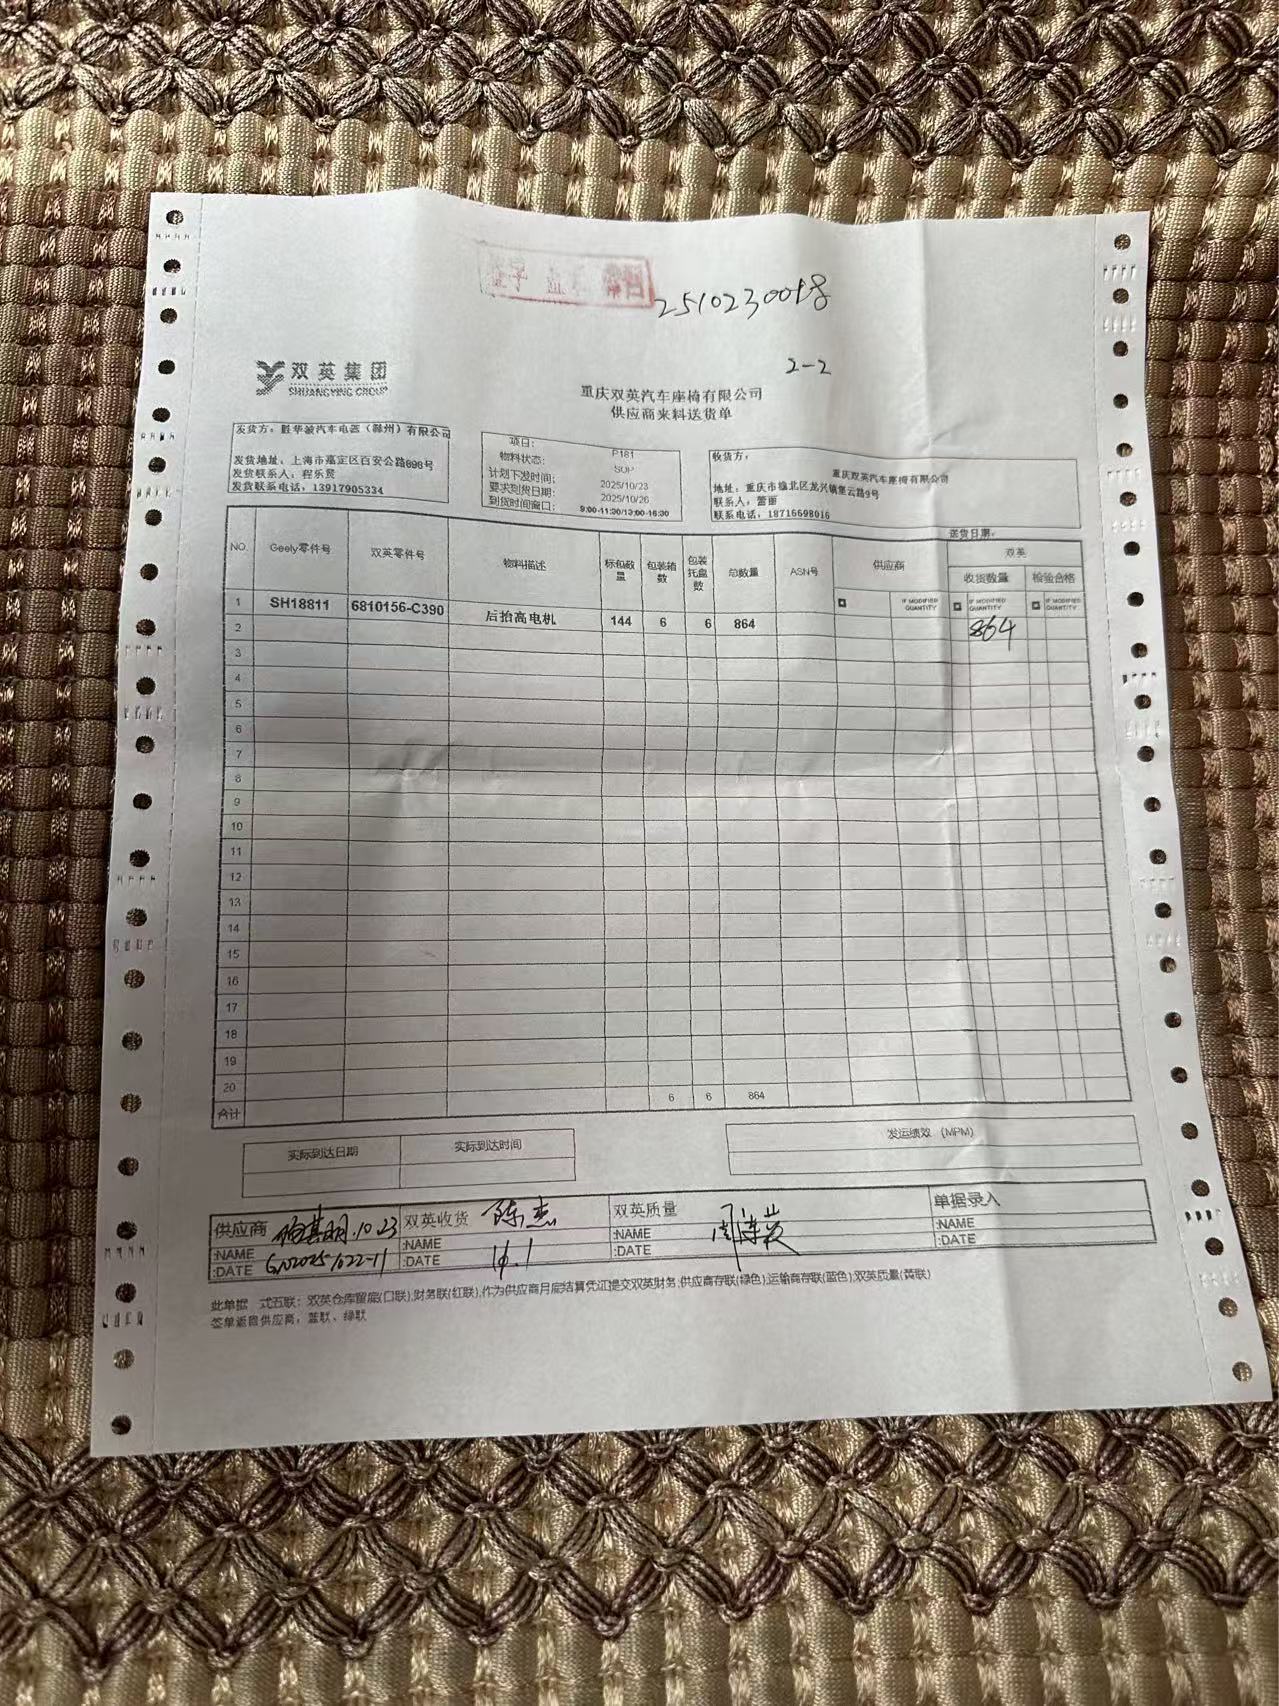 2510230018
2-2
双英集团
SHUANGYING GROUP
重庆双英汽车座椅有限公司
供应商来料送货单
发货方: 胜华波汽车电器（滁州）有限公司
发货地址: 上海市嘉定区百安公路698号
发货联系人: 程乐贤
发货联系电话: 13917905334
项目: P181
物料状态: SOP
计划下发时间: 2025/10/23
要求到货日期: 2025/10/26
到货时间窗口: 9:00-11:30/13:00-16:30
收货方:
重庆双英汽车座椅有限公司
地址: 重庆市渝北区龙兴镇堡云路9号
联系电话: 18716698016
送货日期:
NO. Geely零件号 双英零件号 物料描述 标包数量 包装箱数 包装托盘数 总数量 ASN号 供应商 双英
收货数量 检验合格
IF MODIFIED QUANTITY IF MODIFIED QUANTITY IF MODIFIED QUANTITY
1 SH18811 6810156-C390 后抬高电机 144 6 6 864 864
2
3
4
5
6
7
8
9
10
11
12
13
14
15
16
17
18
19
20
合计 6 6 864
实际到达日期 实际到达时间
发运绩效 (MPM)
供应商 10.23 双英收货 陈杰 双英质量 单据录入
:NAME :NAME :NAME :NAME
:DATE :DATE :DATE :DATE
此单据 式五联: 双英仓库留底(口联),财务联(红联),作为供应商月底结算凭证提交双英财务;供应商存联(绿色);运输商存联(蓝色);双英质量(黄联)
签单返回供应商: 蓝联、绿联